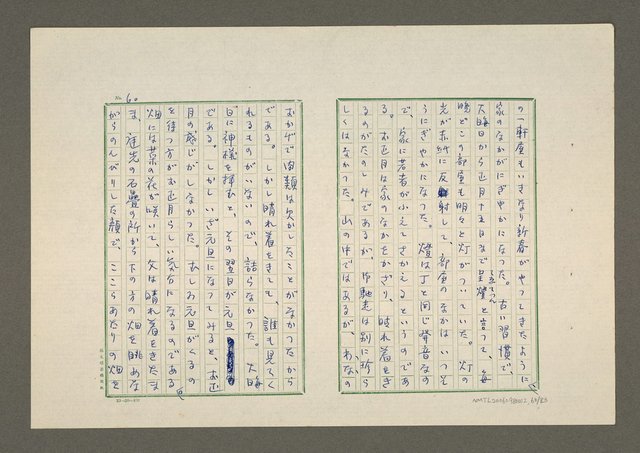 の一軒屋もいきなり新春がやってきたように
家のなかがにぎやかになった。古い習慣で、
大晦日から正月十五日まで 言って、毎
晩どこの部屋も明々と灯がついていた。灯の
光が赤い紙に反射して、部屋のなかはいっそ
うにぎやかになった。燈は丁と同じ発音なの
で、家に若者がふえてさかえるというのであ
る。お正月は家のなかをかざり、晴れ着をき
るのがたのしみであるが、御馳走は別に珍ら
しくはなかった。山の中ではあるが、わなの
No. 6
おかげで肉類は欠かしたことがなかったから
である。しかし晴れ着をきても、誰も見てく
れるものがいないので、詰らなかった。大晦
日に神様を拝むと、その翌日が元旦
である。しかしいざ元旦になってみると、お正
月の感じがしなかった。むしろ元旦
を待つ方がお正月らしい気分になるのである。
畑には菜の花が咲いて、父は晴れ着をきたま
ま、庭先の石疊の所から下の方の畑を眺めな
がらのんびりした顔で、ここらあたりの畑を